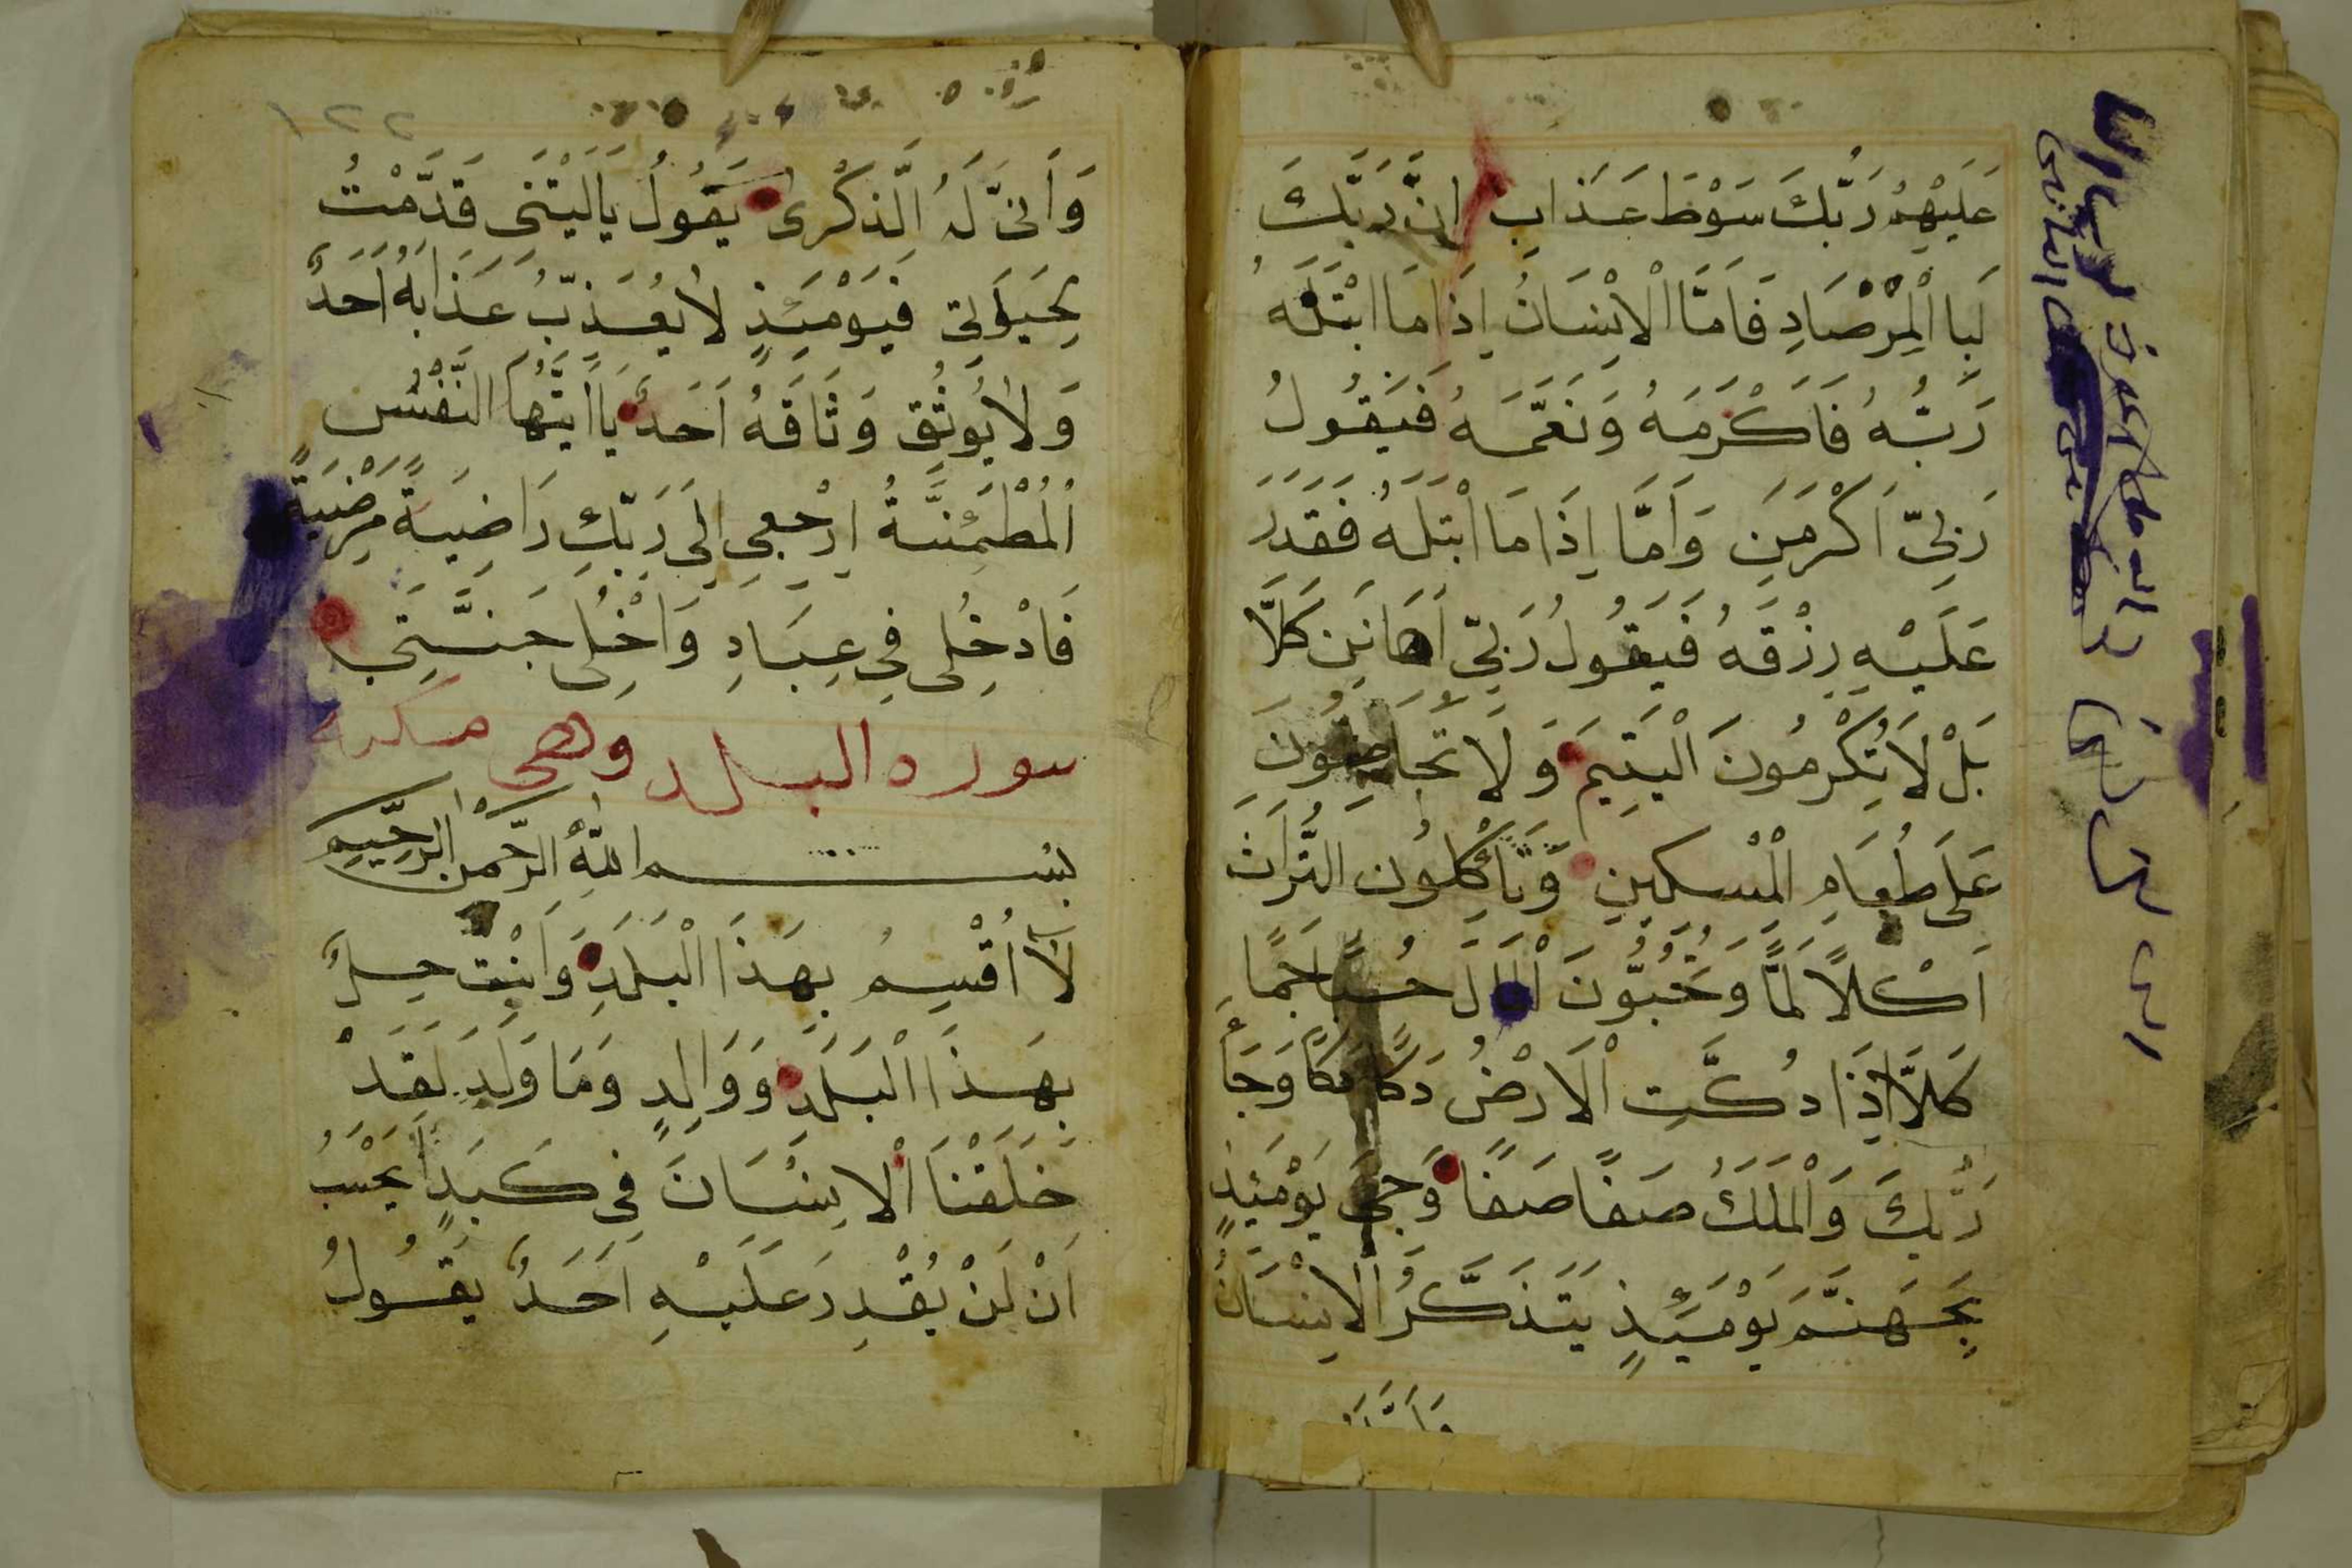 عَلَيْهِمْ رَبُّكَ سَوْطَ عَذَابٍ اِنَّ رَبَّكَ
لَبِا الْمِرْصَادِ فَاَمَّا الْاِنْسَانُ اِذَا مَا ابْتَلَهُ
رَبُّهُ فَاَكْرَمَهُ وَنَعَّمَهُ فَيَقُولُ
رَبِّىّ اَكْرَمَنِ وَاَمَّا اِذَا مَا ابْتَلَهُ فَقَدَرَ
عَلَيْهِ رِزْقَهُ فَيَقُولُ رَبِّىّ اَهَانَنِ كَلَّا
بَلْ لَا تُكْرِمُونَ الْيَتِيمَ وَلَا تَحَاضُّونَ
عَلَى طَعَامِ الْمِسْكِينِ وَتَأْكُلُونَ التُّرَاثَ
اَكْلًا لَمًّا وَتُحِبُّونَ الْمَالَ حُبًّا جَمًّا
كَلَّا اِذَا دُكَّتِ الْاَرْضُ دَكًّا دَكًّا وَجَاءَ
رَبُّكَ وَالْمَلَكُ صَفًّا صَفًّا وَجِىءَ يَوْمَئِذٍ
بِجَهَنَّمَ يَوْمَئِذٍ يَتَذَكَّرُ الْاِنْسَانُ
١٢٢
وَاَنّٰى لَهُ الذِّكْرٰى يَقُولُ يَا لَيْتَنِى قَدَّمْتُ
لِحَيَوٰتِى فَيَوْمَئِذٍ لَا يُعَذِّبُ عَذَابَهُ اَحَدٌ
وَلَا يُوثِقُ وَثَاقَهُ اَحَدٌ يَا اَيَّتُهَا النَّفْسُ
الْمُطْمَئِنَّةُ ارْجِعِى اِلٰى رَبِّكِ رَاضِيَةً مَرْضِيَةً
فَادْخُلِى فِى عِبَادِ وَاخْلِى جَنَّتِى
سوره البلد وهى مكيه
بسم اللهِ الرَّحْمٰنِ الرَّحِيمِ
لَا اُقْسِمُ بِهَذَا الْبَلَدِ وَاَنْتَ حِلٌّ
بِهَذَا الْبَلَدِ وَوَالِدٍ وَمَا وَلَدَ لَقَدْ
خَلَقْنَا الْاِنْسَانَ فِى كَبَدٍ اَيَحْسَبُ
اَنْ لَنْ يَقْدِرَ عَلَيْهِ اَحَدٌ يَقُولُ